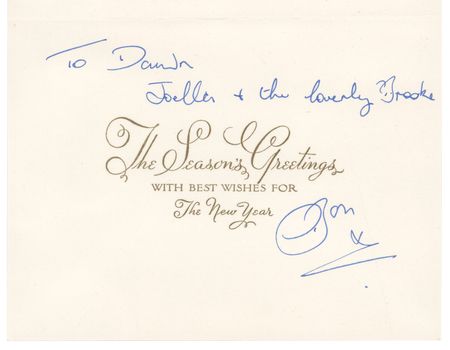 To Damon
Joelle + the loverly Brooke
The Season's Greetings
WITH BEST WISHES FOR
The New Year
Ron x